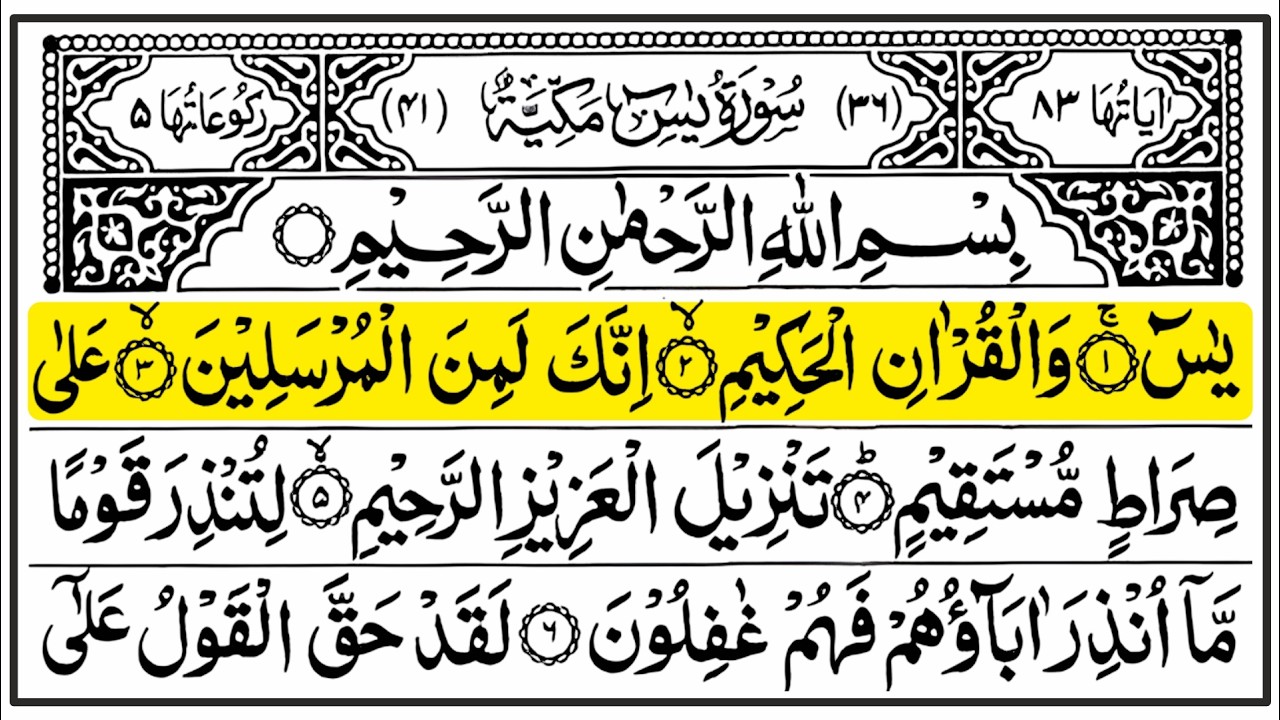 اٰیَاتُهَا ٨٣ (٣٦) سُوْرَةُ یٰسٓ مَكِّیَّةٌ (٤١) رُكُوْعَاتُهَا ٥
بِسْمِ اللهِ الرَّحْمٰنِ الرَّحِیْمِ
یٰسٓ ۚ ﴿١﴾ وَالْقُرْاٰنِ الْحَكِیْمِ ۙ ﴿٢﴾ اِنَّكَ لَمِنَ الْمُرْسَلِیْنَ ۙ ﴿٣﴾ عَلٰی
صِرَاطٍ مُّسْتَقِیْمٍ ؕ ﴿٤﴾ تَنْزِیْلَ الْعَزِیْزِ الرَّحِیْمِ ۙ ﴿٥﴾ لِتُنْذِرَ قَوْمًا
مَّاۤ اُنْذِرَ اٰبَآؤُهُمْ فَهُمْ غٰفِلُوْنَ ﴿٦﴾ لَقَدْ حَقَّ الْقَوْلُ عَلٰۤی